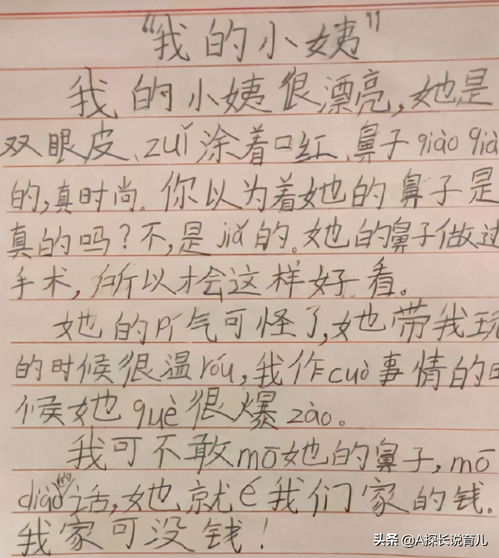 “我的小姨”
我的小姨很漂亮,她是
双眼皮、zuǐ涂着口红、鼻子qiào qià
的,真时尚。你以为着她的鼻子是
真的吗?不,是jiǎ的。她的鼻子做过
手术,所以才会这样好看。
她的pí气可怪了,她带我玩
的时候很温róu,我作cuò事情的时
候她què很爆zào。
我可不敢mō她的鼻子,mō
diào的话,她就é我们家的钱。
我家可没钱!
头条 @A探长说育儿